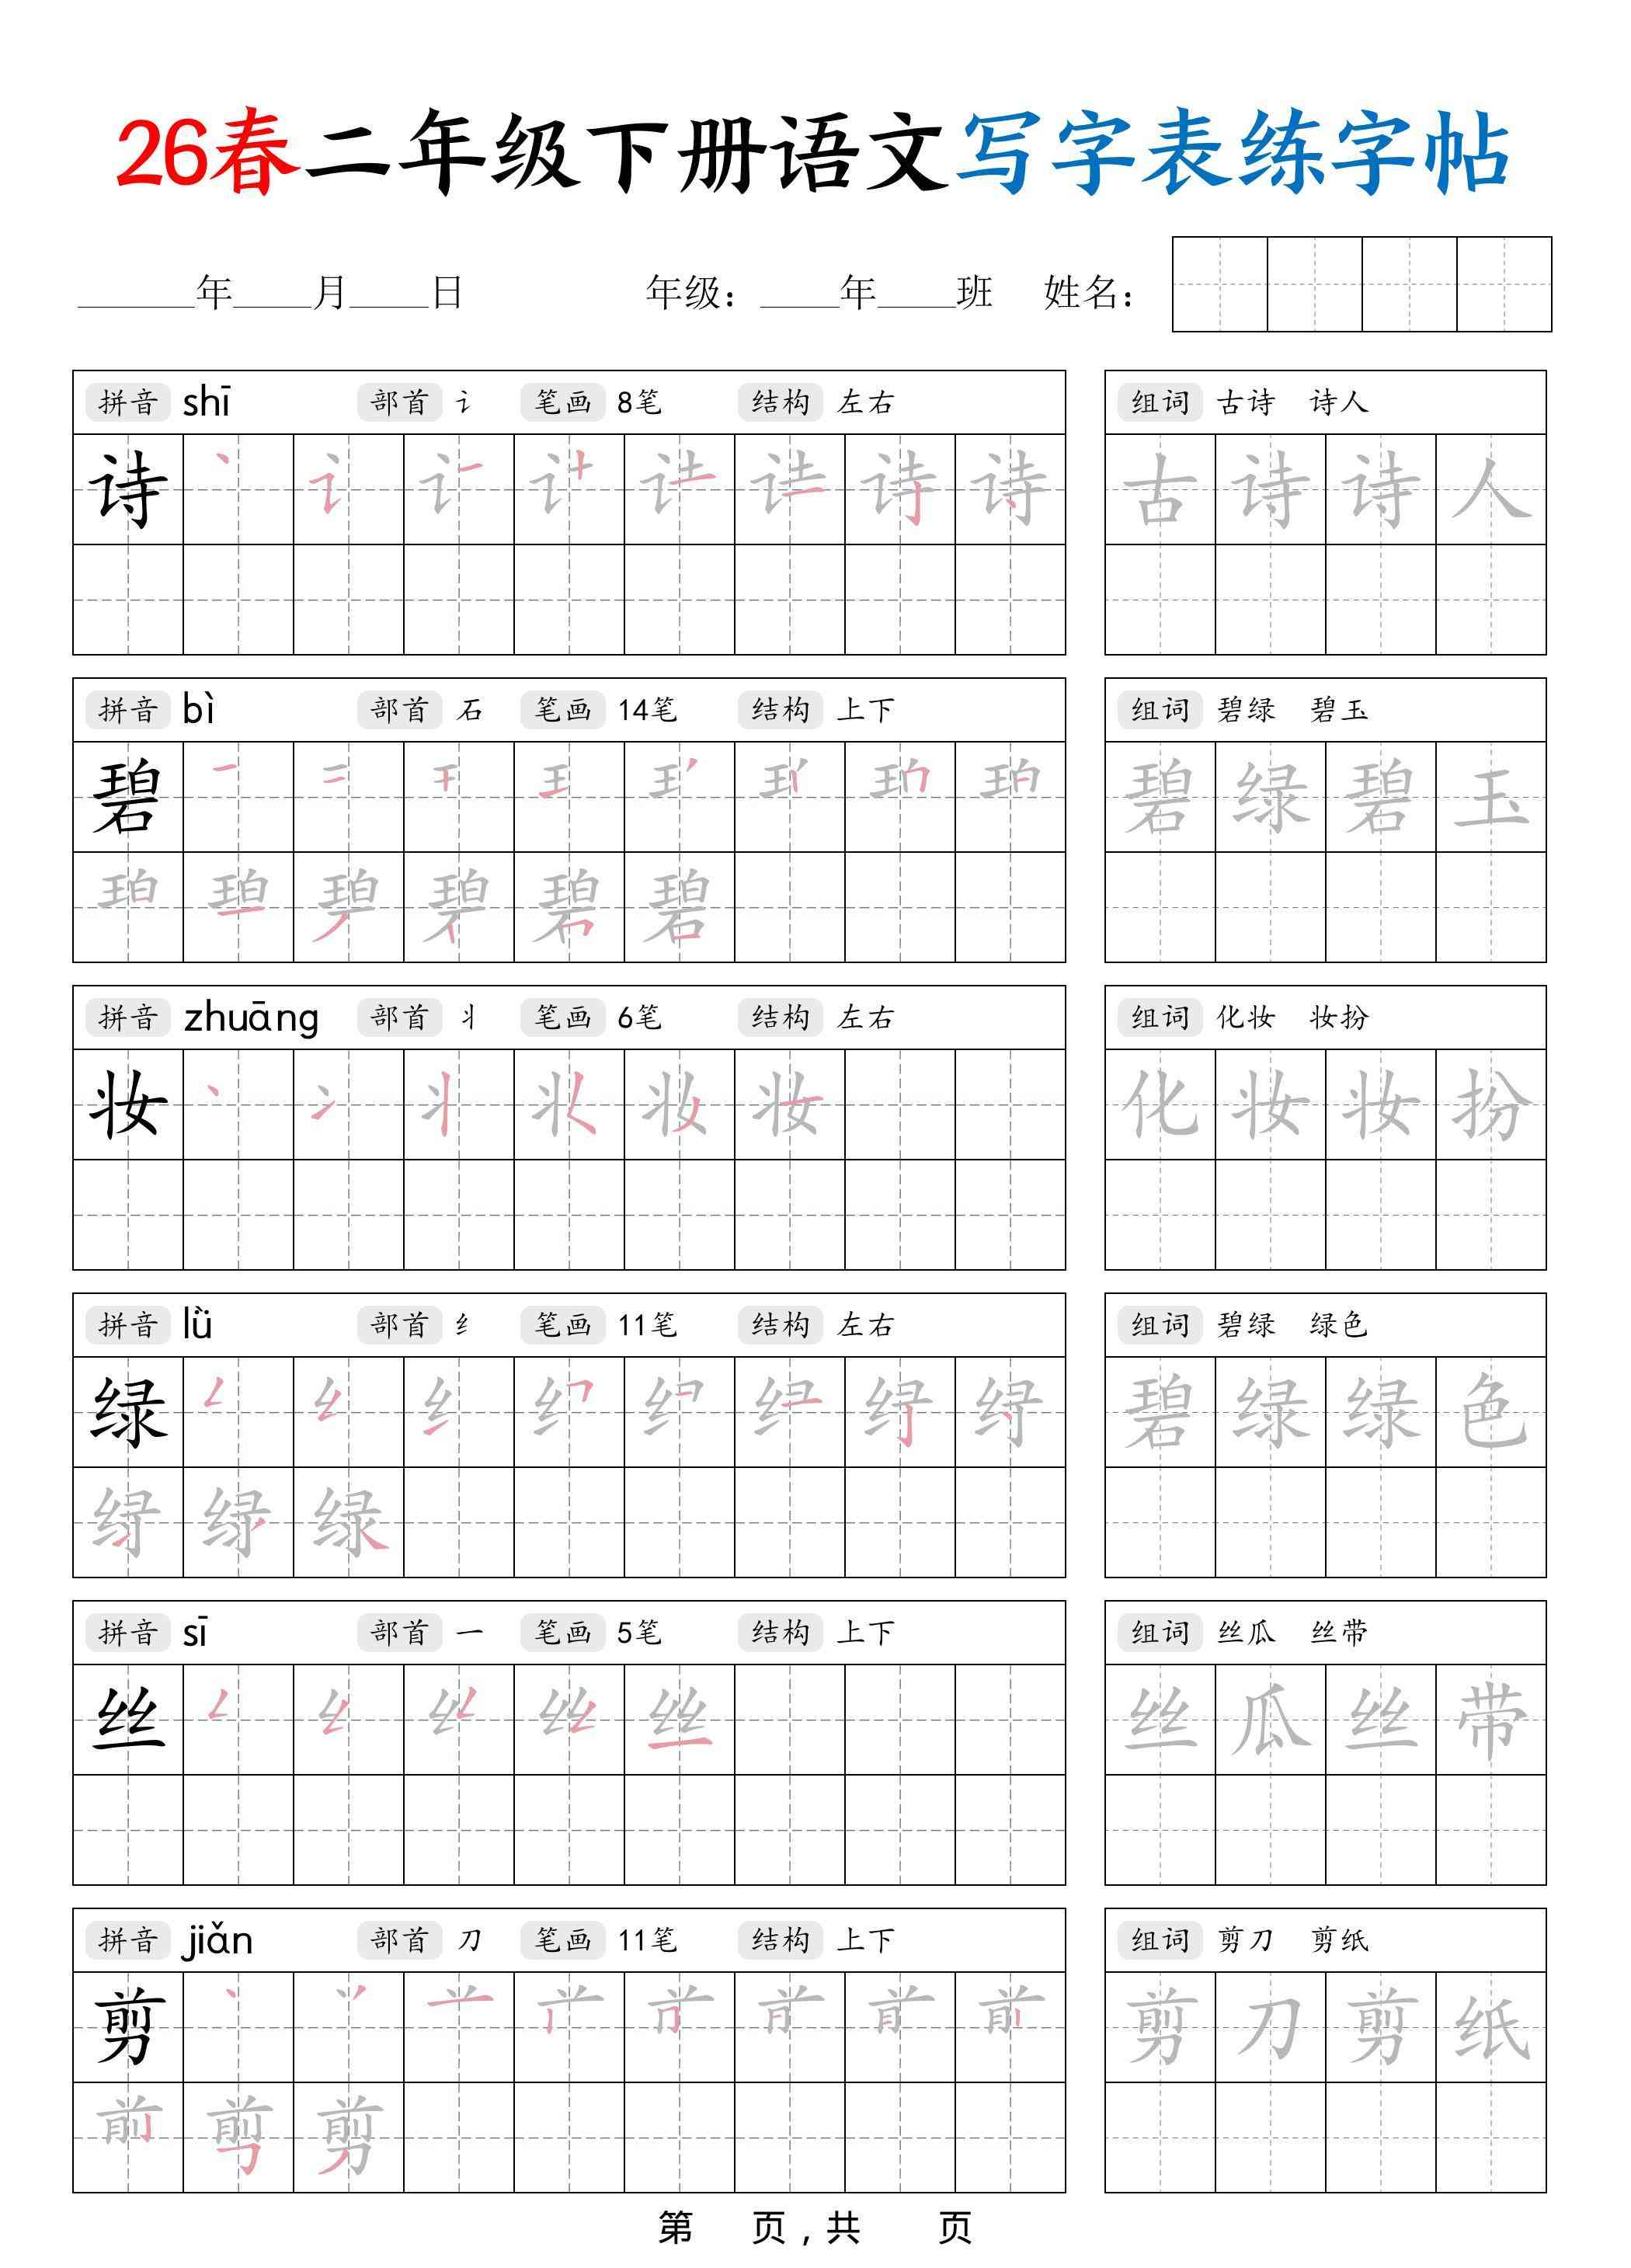 26春二年级下册语文写字表练字帖
______年____月____日 年级：____年____班 姓名：
拼音 shī 部首 讠 笔画 8笔 结构 左右 组词 古诗 诗人
诗 古 诗 诗 人
拼音 bì 部首 石 笔画 14笔 结构 上下 组词 碧绿 碧玉
碧 碧 绿 碧 玉
碧
拼音 zhuāng 部首 丬 笔画 6笔 结构 左右 组词 化妆 妆扮
妆 妆 化 妆 妆 扮
拼音 lǜ 部首 纟 笔画 11笔 结构 左右 组词 碧绿 绿色
绿 碧 绿 绿 色
绿
拼音 sī 部首 一 笔画 5笔 结构 上下 组词 丝瓜 丝带
丝 丝 丝 瓜 丝 带
拼音 jiǎn 部首 刀 笔画 11笔 结构 上下 组词 剪刀 剪纸
剪 剪 刀 剪 纸
前 剪
第 页，共 页